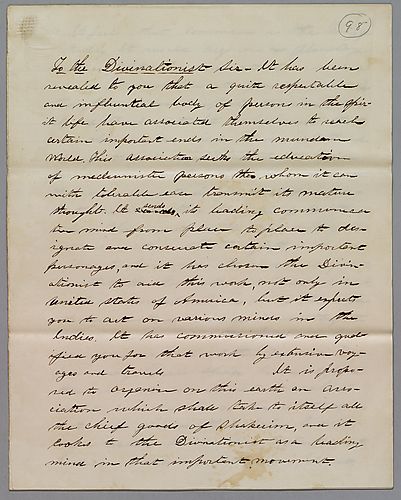 98
To the Divinationist Sir - It has been
revealed to you that a quite respectable
and influential body of persons in the Spir-
it life have associated themselves to reach
certain important ends in the mundane
World, this association seeks the education
of mediumistic persons thro whom it can
with tolerable ease transmit its mature
thought. It sends its leading communica
tive mind from place to place to des-
ignate and consecrate certain important
personages, and it has chosen the Divin-
ationist to aid this work, not only in
United States of America, but it expects
you to act on various minds in the
Indies. It has commissioned and qual
ified you for that work by extensive voy-
ages and travels It is propo-
sed to organise on this earth an asso-
ciation which shall take to itself all
the chief goods of Shakerism, and it
looks to the Divinationist as a leading
mind in that important movement.